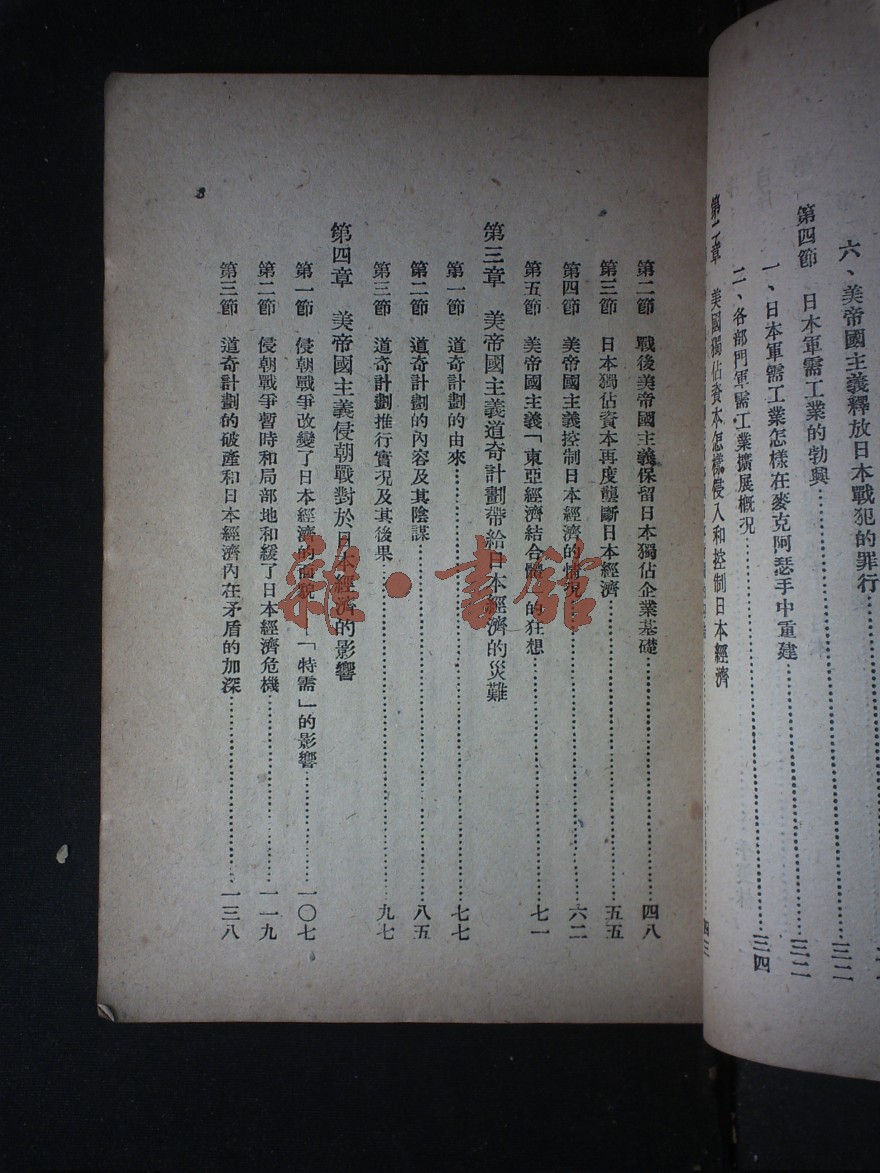 六、美帝國主義釋放日本戰犯的罪行……三二
第四節 日本軍需工業的勃興……三二
一、日本軍需工業怎樣在麥克阿瑟手中重建……三四
二、各部門軍需工業擴展概況
第二章 美國獨佔資本怎樣侵入和控制日本經濟
第二節 戰後美帝國主義保留日本獨佔企業基礎……四八
第三節 日本獨佔資本再度壟斷日本經濟……五五
第四節 美帝國主義控制日本經濟的情況……六二
第五節 美帝國主義「東亞經濟結合體」的狂想……七一
第三章 美帝國主義道奇計劃帶給日本經濟的災難
第一節 道奇計劃的由來……七七
第二節 道奇計劃的內容及其陰謀……八五
第三節 道奇計劃推行實況及其後果……九七
第四章 美帝國主義侵朝戰對於日本經濟的影響
第一節 侵朝戰爭改變了日本經濟的面貌——「特需」的影響……一〇七
第二節 侵朝戰爭暫時和局部地和緩了日本經濟危機……一一九
第三節 道奇計劃的破產和日本經濟內在矛盾的加深……一三八
3
雜·書館